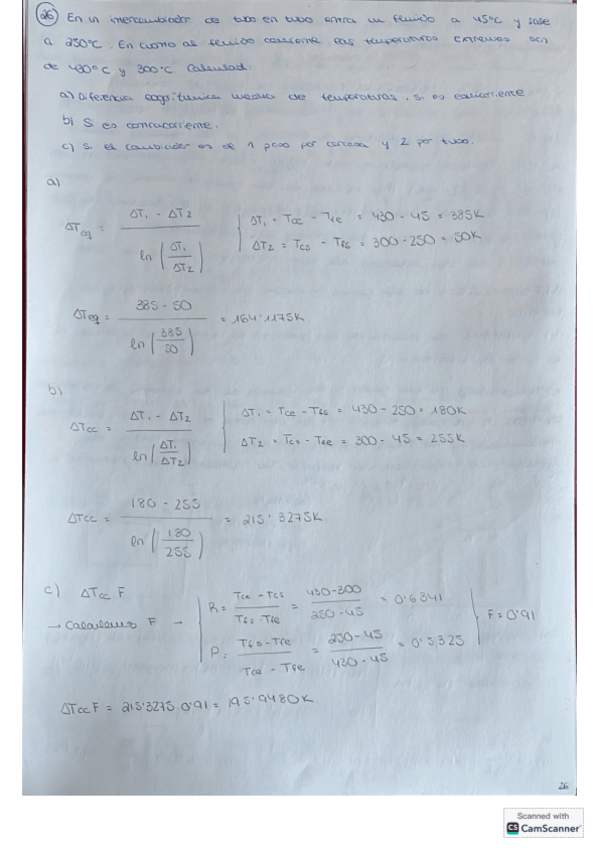 26) En un intercambiador de tubo en tubo entra un fluido a 45°C y sale
a 250°C. En cuanto al fluido caliente las temperaturas extremas son
de 430°C y 300°C. Calculad:
a) Diferencia logarítmica media de temperaturas, si es equicorriente
b) Si es contracorriente.
c) Si el cambiador es de 1 paso por carcasa y 2 por tubo.
a)
ΔTeq = (ΔT1 - ΔT2) / ln(ΔT1/ΔT2) { ΔT1 = Tce - Tfe = 430 - 45 = 385K
ΔT2 = Tcs - Tfs = 300 - 250 = 50K
ΔTeq = (385 - 50) / ln(385/50) = 164'1175K
b)
ΔTcc = (ΔT1 - ΔT2) / ln(ΔT1/ΔT2) { ΔT1 = Tce - Tfs = 430 - 250 = 180K
ΔT2 = Tcs - Tfe = 300 - 45 = 255K
ΔTcc = (180 - 255) / ln(180/255) = 215'3275K
c) ΔTcc F
→ Calculamos F → { R = (Tce - Tcs)/(Tfs - Tfe) = (430-300)/(250-45) = 0'6341
P = (Tfs - Tfe)/(Tce - Tfe) = (250-45)/(430-45) = 0'5325 } F = 0'91
ΔTcc F = 215'3275·0'91 = 195'9480K
26
Scanned with
CS CamScanner